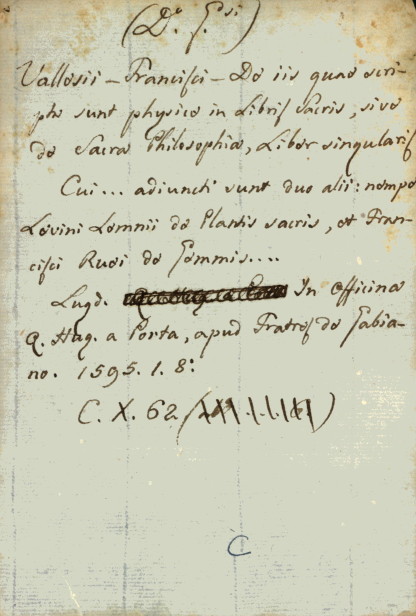 (D.° G.si)
Vallesii - Francisci - De iis quae scri-
pta sunt physice in Libris sacris, sive
de Sacra Philosophia, Liber singularis
Cui... adiuncti sunt duo alii: nempe
Levini Lemnii de Plantis sacris, et Fran-
cisci Ruei de Gemmis....
Lugd. In Officina
Q. Hug. a Porta, apud Fratres de Gabia-
no. 1595. 1. 8:
C. X. 62
C